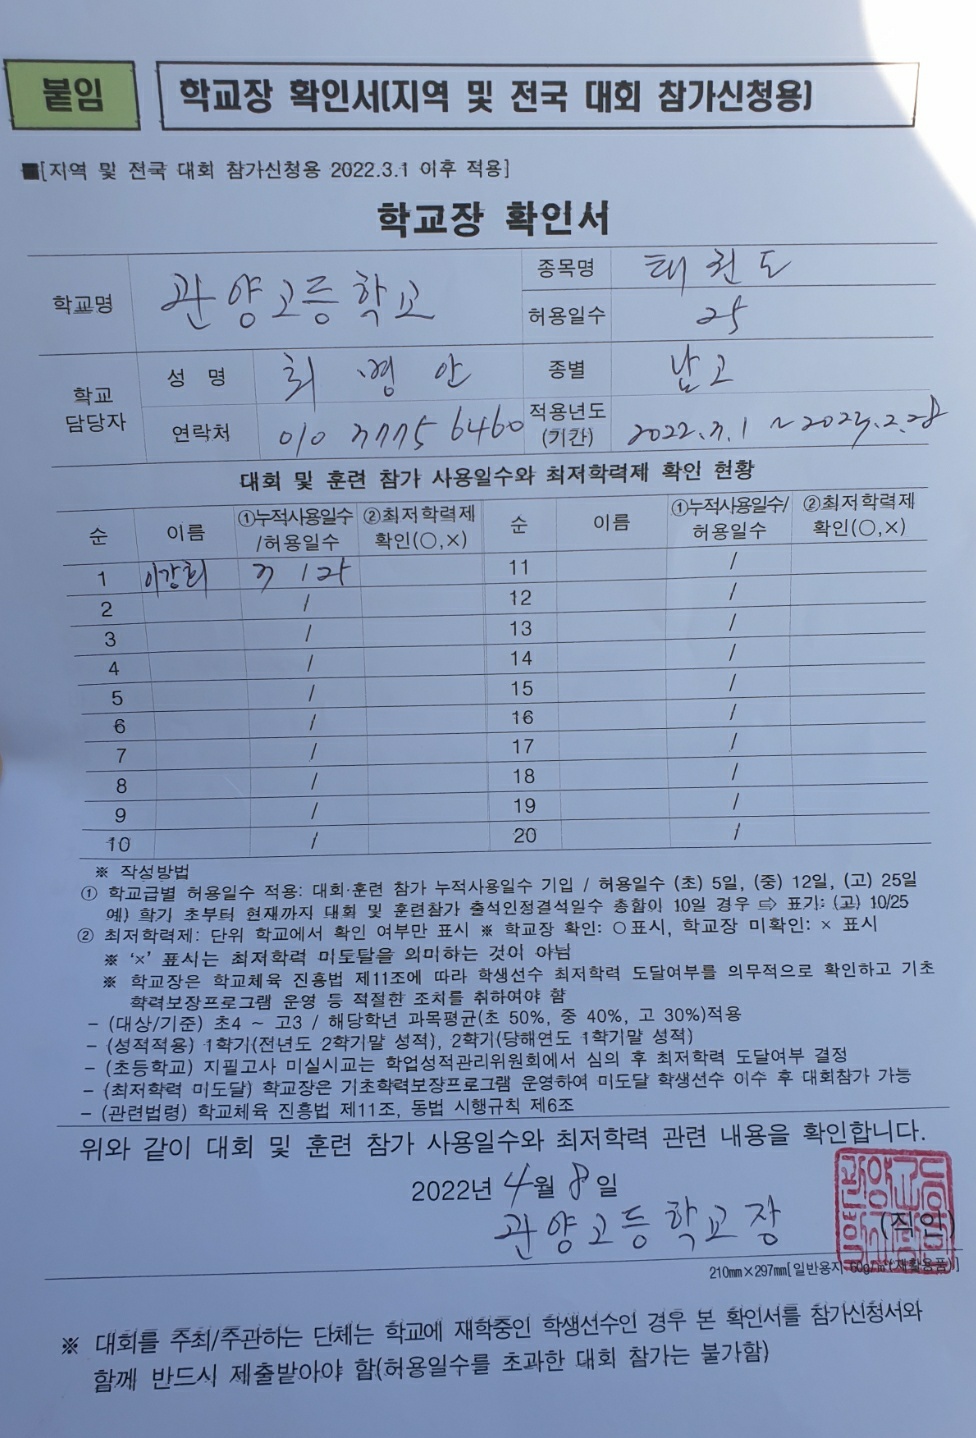 붙임
학교장 확인서(지역 및 전국 대회 참가신청용)
■[지역 및 전국 대회 참가신청용 2022.3.1 이후 적용]
학교장 확인서
학교명 관양고등학교 종목명 태권도
허용일수 25
학교 담당자 성 명 최 병 안 종별 남고
연락처 010 7775 6460 적용년도 (기간) 2022. 3. 1 ~ 2023. 2. 28
대회 및 훈련 참가 사용일수와 최저학력제 확인 현황
순 이름 ①누적사용일수 /허용일수 ②최저학력제 확인(○,×) 순 이름 ①누적사용일수/ 허용일수 ②최저학력제 확인(○,×)
1 이강희 3 / 25 11 /
2 / 12 /
3 / 13 /
4 / 14 /
5 / 15 /
6 / 16 /
7 / 17 /
8 / 18 /
9 / 19 /
10 / 20 /
※ 작성방법
① 학교급별 허용일수 적용: 대회·훈련 참가 누적사용일수 기입 / 허용일수 (초) 5일, (중) 12일, (고) 25일
예) 학기 초부터 현재까지 대회 및 훈련참가 출석인정결석일수 총합이 10일 경우 ⇨ 표기: (고) 10/25
② 최저학력제: 단위 학교에서 확인 여부만 표시 ※ 학교장 확인: ○표시, 학교장 미확인: × 표시
※ ‘×’ 표시는 최저학력 미도달을 의미하는 것이 아님
※ 학교장은 학교체육 진흥법 제11조에 따라 학생선수 최저학력 도달여부를 의무적으로 확인하고 기초
학력보장프로그램 운영 등 적절한 조치를 취하여야 함
- (대상/기준) 초4 ~ 고3 / 해당학년 과목평균(초 50%, 중 40%, 고 30%)적용
- (성적적용) 1학기(전년도 2학기말 성적), 2학기(당해연도 1학기말 성적)
- (초등학교) 지필고사 미실시교는 학업성적관리위원회에서 심의 후 최저학력 도달여부 결정
- (최저학력 미도달) 학교장은 기초학력보장프로그램 운영하여 미도달 학생선수 이수 후 대회참가 가능
- (관련법령) 학교체육 진흥법 제11조, 동법 시행규칙 제6조
위와 같이 대회 및 훈련 참가 사용일수와 최저학력 관련 내용을 확인합니다.
2022년 4월 8일
관양고등학교장 (직인)
210㎜×297㎜[일반용지 60g/㎡(재활용품)]
※ 대회를 주최/주관하는 단체는 학교에 재학중인 학생선수인 경우 본 확인서를 참가신청서와
함께 반드시 제출받아야 함(허용일수를 초과한 대회 참가는 불가함)